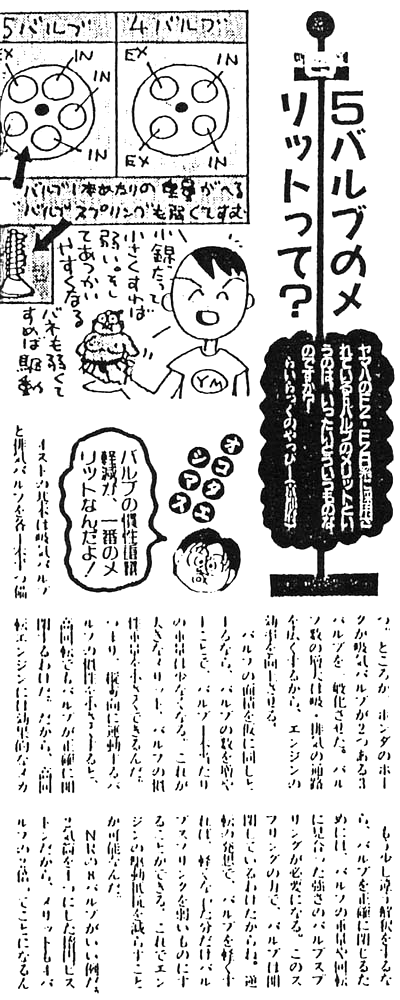 5バルブのメ
リットって?
5バルブ
4バルブ
EX
IN
IN
IN
EX
IN
IN
EX
バルブ1本あたりの重量がへる
バルブスプリングも弱くてすむ
小錦だって
小さくすれば
弱い。そし
てあつかい
やすくなる
バネも弱くて
すめば駆動
YM
オコタ
エシマス
バルブの慣性重量
軽減が、一番のメ
リットなんだよ!
と排気バルブを各1本ずつ備
つ。ところが、ホンダのホー
クが吸気バルブが2つある3
バルブを一般化させた。バル
ブ数の増大は吸・排気の通路
を広くするから、エンジンの
効率を向上させる。
バルブの面積を仮に同じと
するなら、バルブの数を増や
すことで、バルブ一本当たり
の重量は少なくなる。これが
大きなメリット。バルブの慣
性重量を小さくできるんだ。
つまり、縦方向に運動するバ
ルブの慣性を小さくすると、
高回転でもバルブが正確に開
閉するわけだ。だから、高回
転エンジンには効果的なメカ
もう少し違う解釈をするな
ら、バルブを正確に閉じるた
めには、バルブの重量や回転
に見合った強さのバルブスプ
リングが必要になる。このス
プリングの力で、バルブは開
閉しているわけだからね。逆
転の発想で、バルブを軽くす
れば、軽くなった分だけバル
ブスプリングを弱いものにす
ることができる。これでエン
ジンの駆動抵抗を減らすこと
が可能なんだ。
NRの8バルブがいい例だ。
2気筒を1つにした楕円ピス
トンだから、メリットも4バ
ルブの2倍ってことになるん